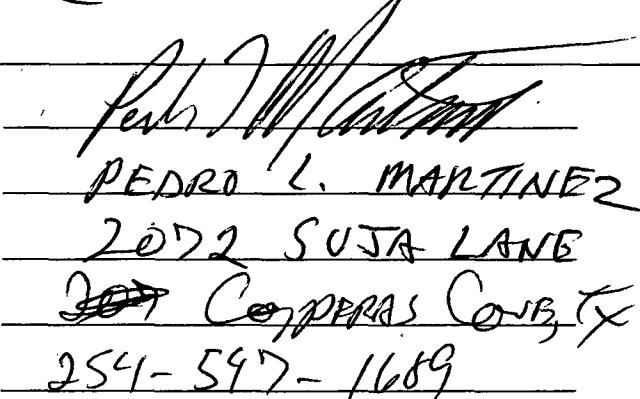 PEDRO L. MARTINEZ
2072 SUJA LANE
COPPERAS COVE, TX
254-547-1689